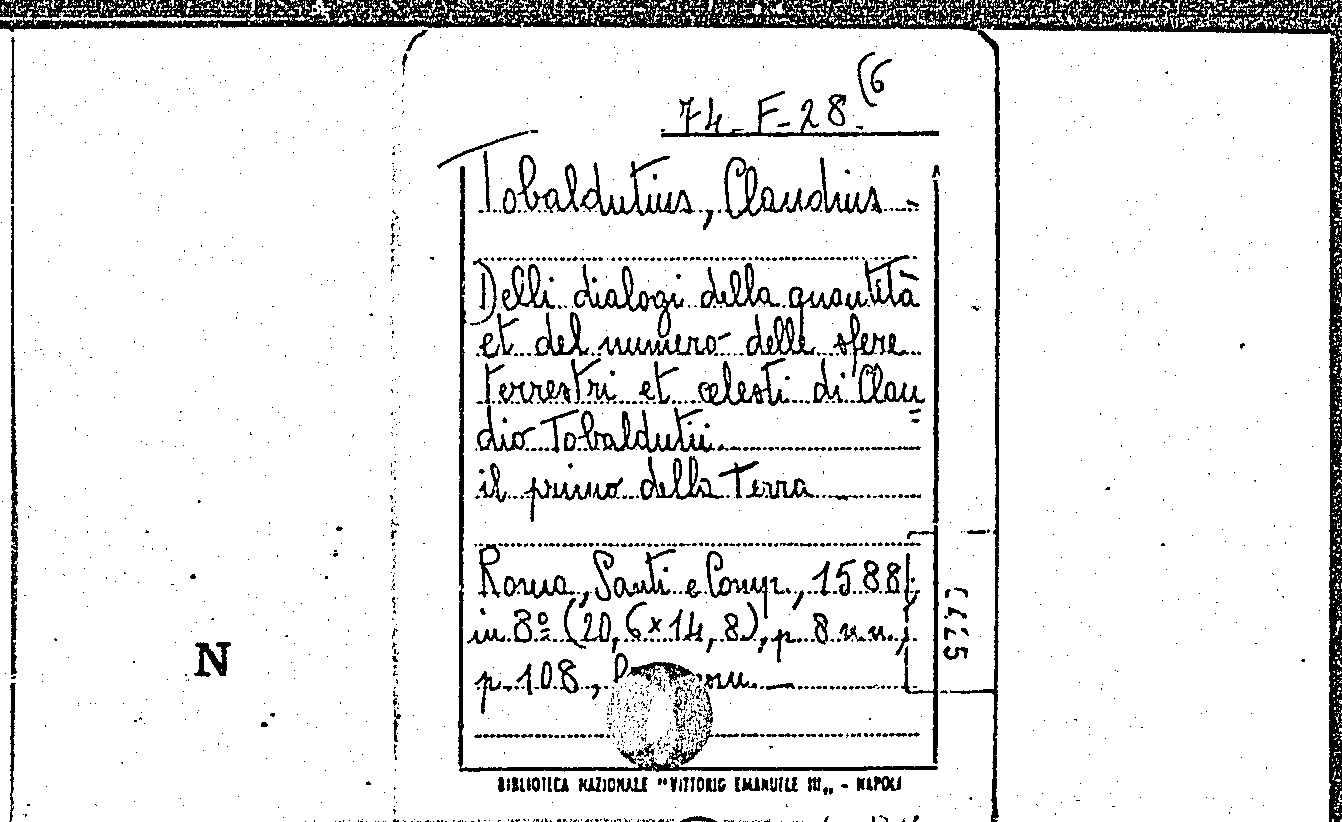 74-F-28 (6
Tobaldutius, Claudius -
Delli dialogi della quantità
et del numero delle sfere
terrestri et celesti di Clau
=
dio Tobaldutii.
il primo della Terra
Roma, Santi e Comp., 1588;
in 8º (20,6x14,8), p. 8 n.n.,
p. 108,
N
BIBLIOTECA NAZIONALE "VITTORIO EMANUELE III„ - NAPOLI